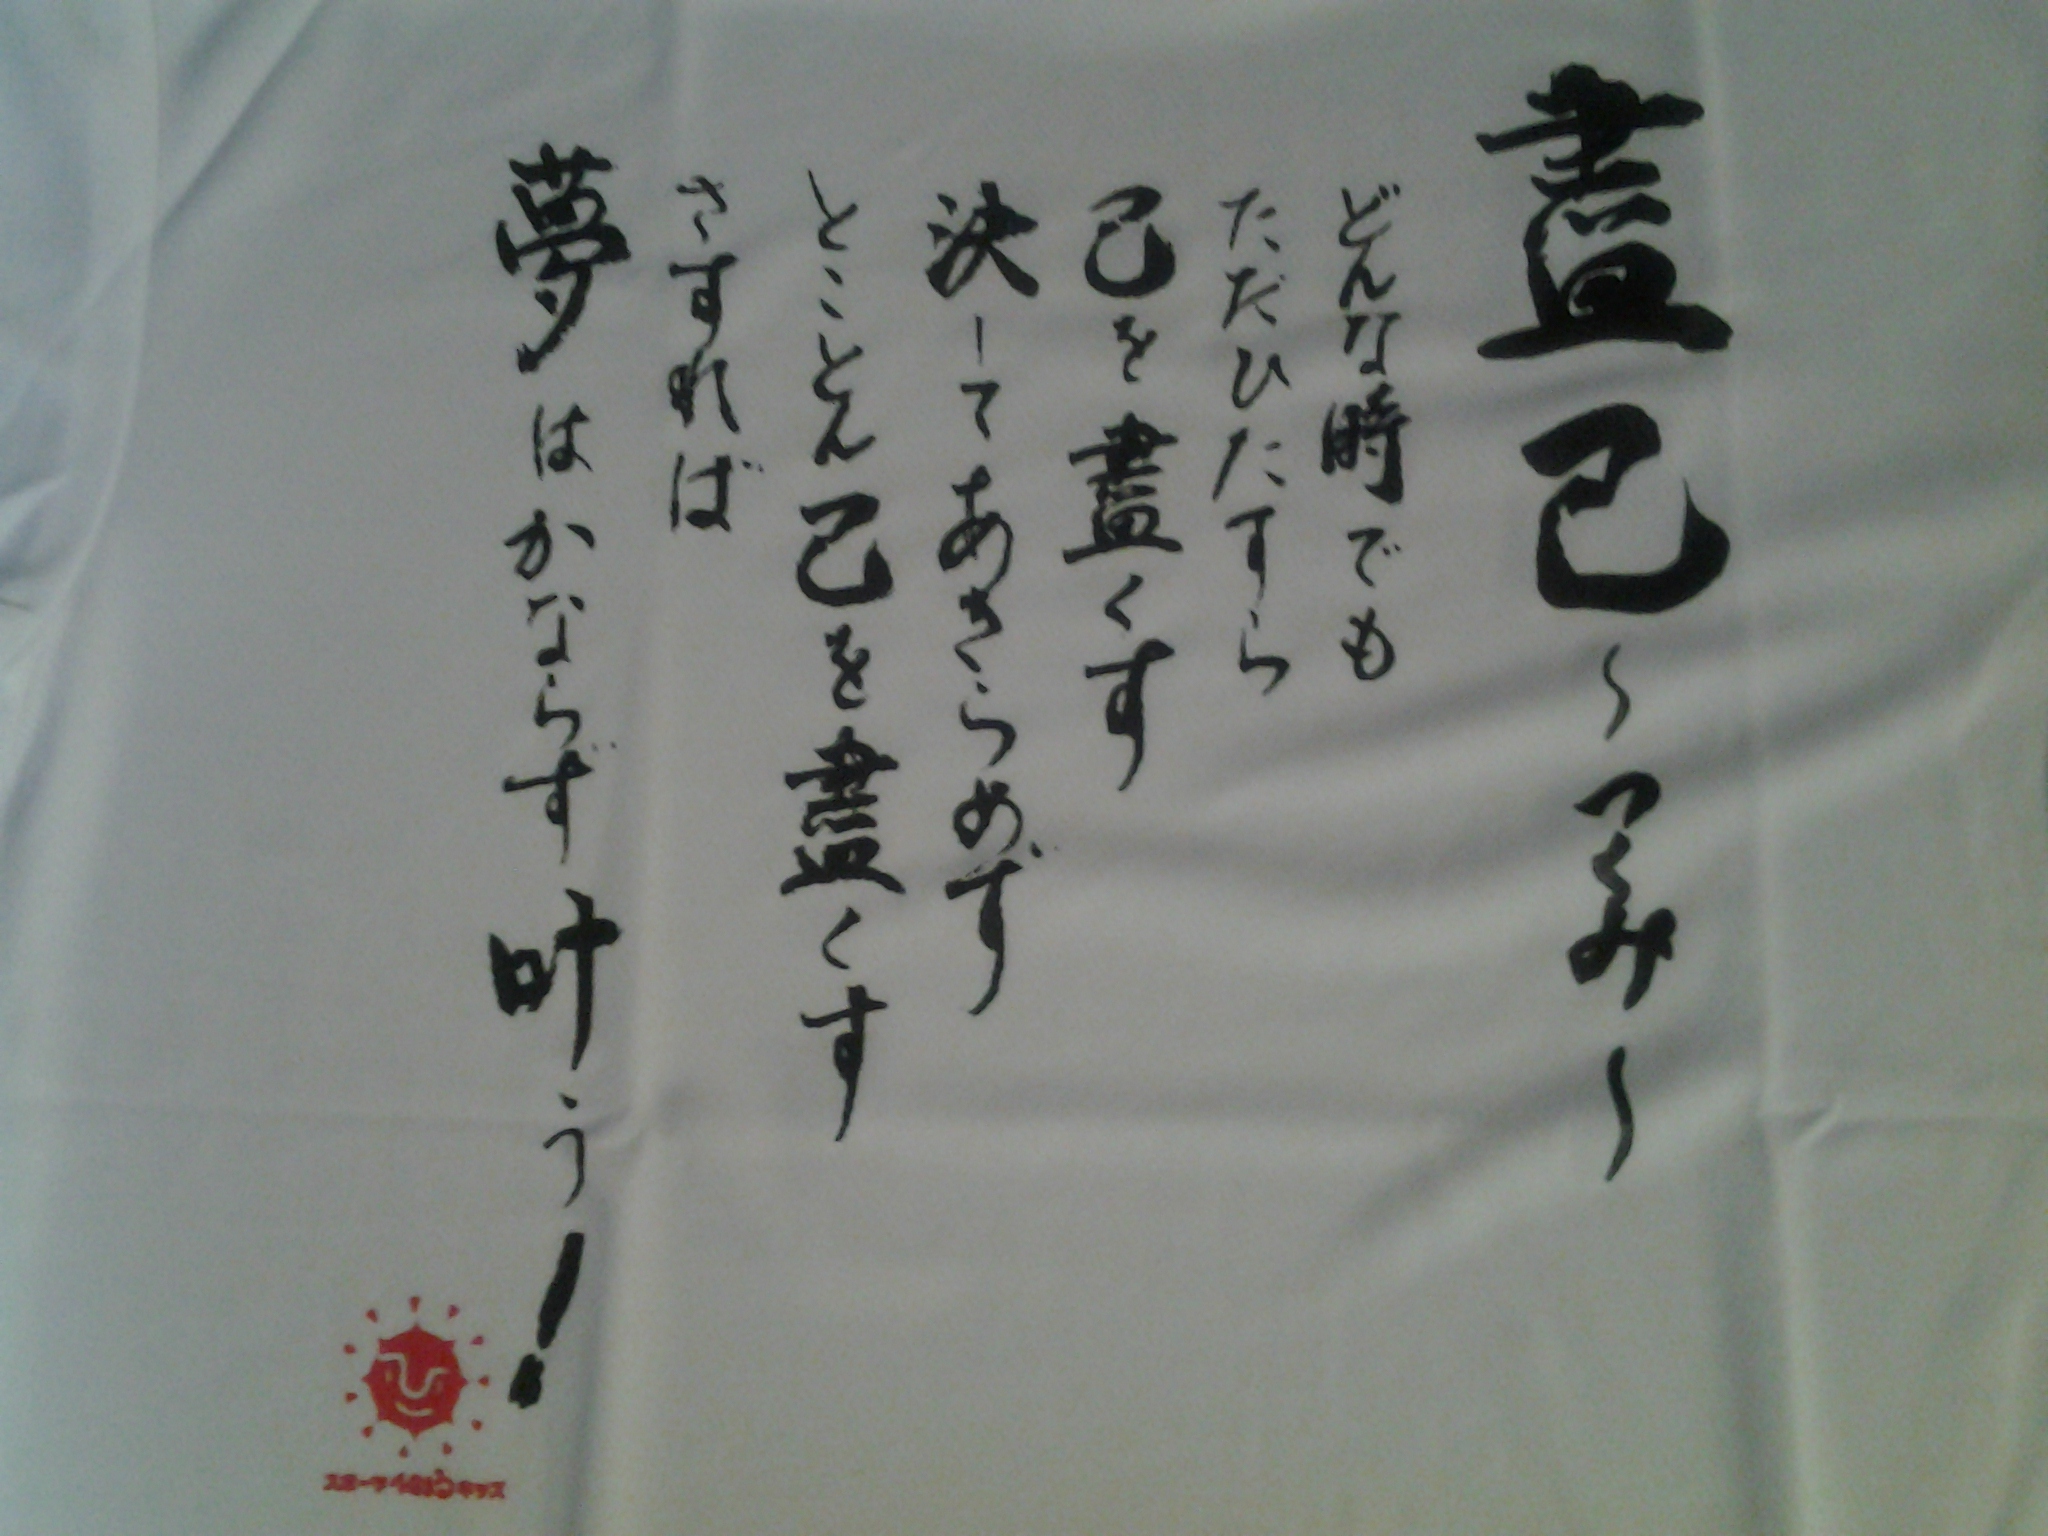 盡己～つくみ～
どんな時でも
ただひたすら
己を盡くす
決してあきらめず
とことん己を盡くす
さすれば
夢はかならず叶う!